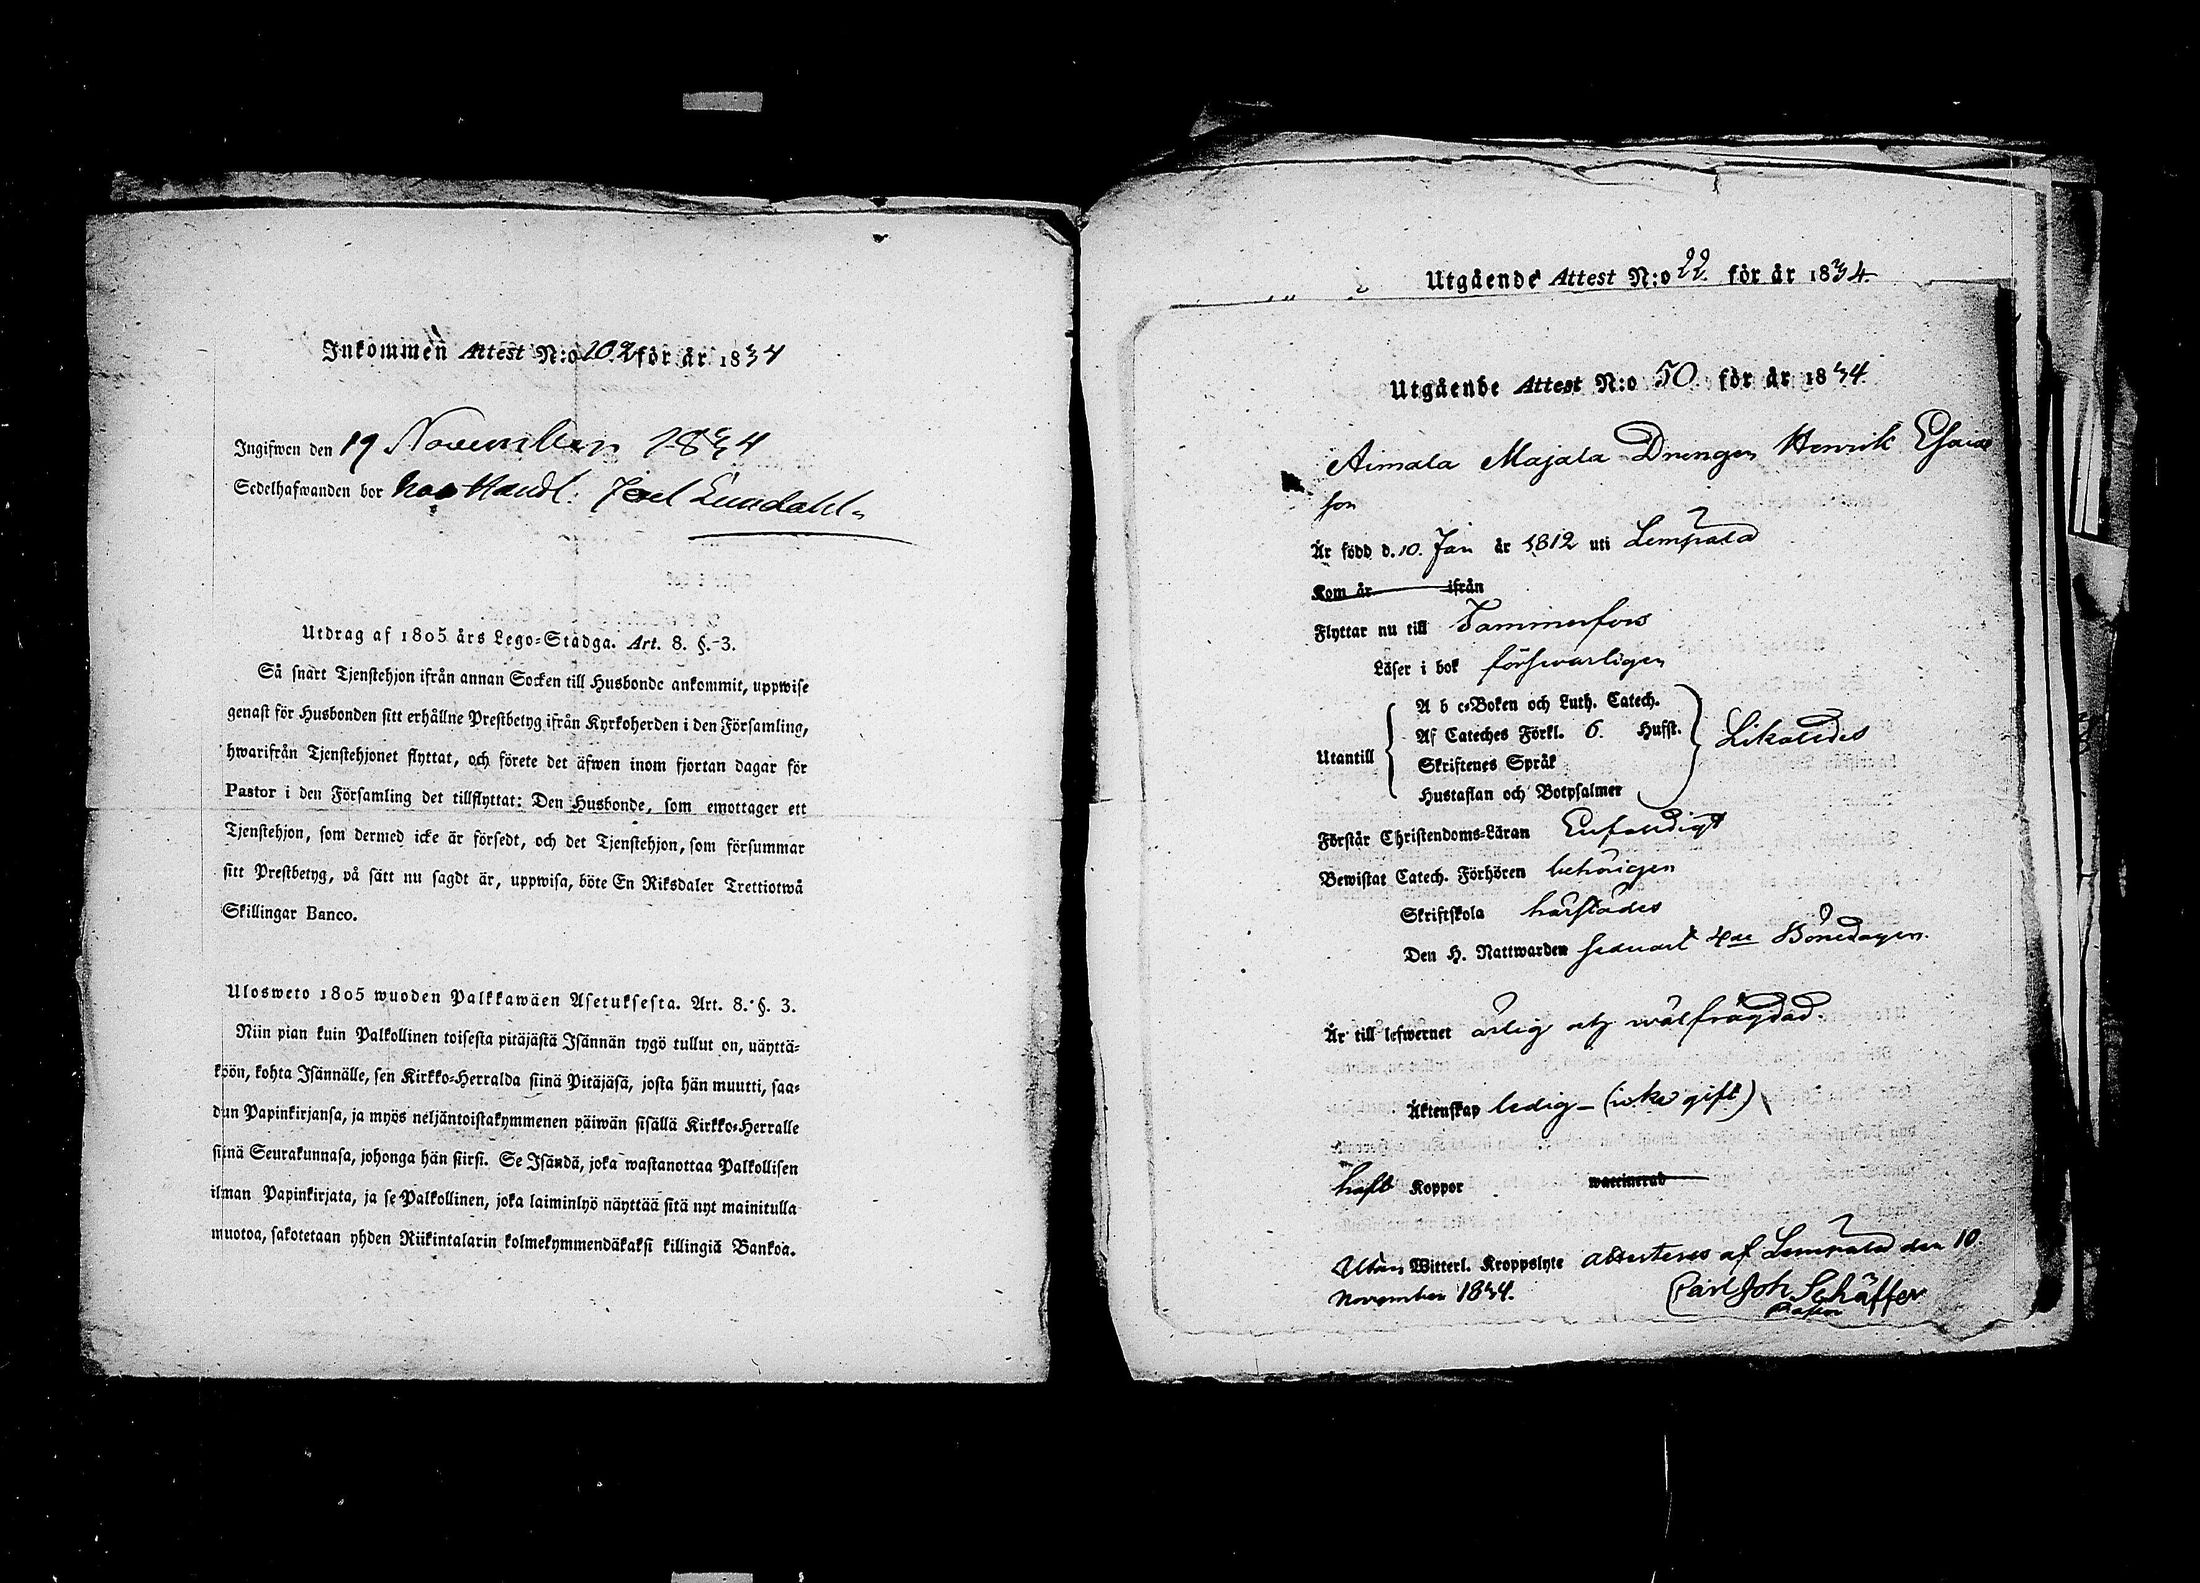 Inkommen Attest N:o 202 för år 1834
Ingifwen den 19 November 1834
Sedelhafwanden bor hos Handl. Joel Lundahl.
Utdrag af 1805 års Lego-Stadga. Art. 8. §. 3.
Så snart Tjenstehjon ifrån annan Socken till Husbonde ankommit, uppwise
genast för Husbonden sitt erhållne Prestbetyg ifrån Kyrkoherden i den Församling,
hwarifrån Tjenstehjonet flyttat, och förete det äfwen inom fjortan dagar för
Pastor i den Församling det tillflyttat: Den Husbonde, som emottager ett
Tjenstehjon, som dermed icke är försedt, och det Tjenstehjon, som försummar
sitt Prestbetyg, på sätt nu sagdt är, uppwisa, böte En Riksdaler Trettiotwå
Skillingar Banco.
Ulosweto 1805 wuoden Palkkawäen Asetuksesta. Art. 8. §. 3.
Niin pian kuin Palkollinen toisesta pitäjästä Isännän tygö tullut on, näyttä-
köön, kohta Isännälle, sen Kirkko-Herralda siinä Pitäjäsä, josta hän muutti, saa-
dun Papinkirjansa, ja myös neljäntoistakymmenen päiwän sisällä Kirkko-Herralle
siinä Seurakunnasa, johonga hän siirsi. Se Isändä, joka wastanottaa Palkollisen
ilman Papinkirjata, ja se Palkollinen, joka laiminlyö näyttää sitä nyt mainitulla
muotoa, sakotetaan yhden Riikintalarin kolmekymmendäkaksi killingiä Bankoa.
Utgående Attest N:o 22 för år 1834.
Utgående Attest N:o 50 för år 1834.
Aimala Majala Drengen Henrik Esaias
son
Är född d. 10. Jan år 1812 uti Lempälä
Kom år ifrån
Flyttar nu till Tammerfors
Läser i bok försvarligen
A b c-Boken och Luth. Catech.
Af Cateches Förkl. 6. Hufst.
Utantill Likaledes
Skriftenes Språk
Hustaflan och Botpsalmer
Förstår Christendoms-Läran Enfaldigt
Bewistat Catech. Förhören behörigen
Skriftskola härstädes
Den H. Nattwarden sednast 4de Bönedagen.
Är till lefwernet ärlig och wälfrägdad.
Äktenskap ledig - (icke gift)
haft Koppor waccinerad
Utan Witterl. Kroppslyte attesteres af Lempälä den 10.
November 1834. Carl Joh Schäffer
Pastor